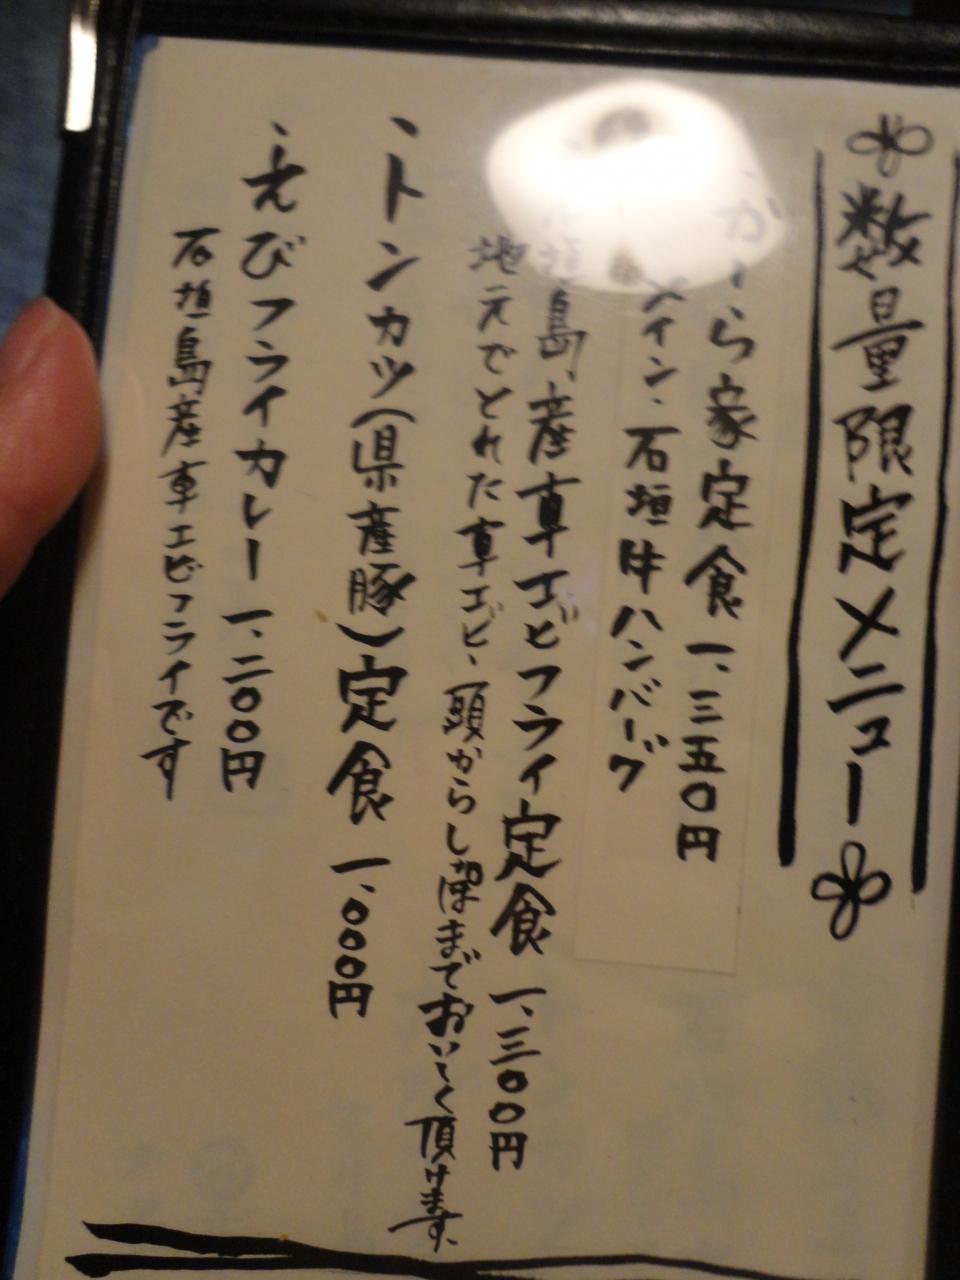 数量限定メニュー
がーら家定食 一、三五〇円
メイン・石垣牛ハンバーグ
石垣島産車エビフライ定食 一、三〇〇円
地元でとれた車エビ、頭からし尾まで おいしく頂けます。
、トンカツ(県産豚)定食 一、〇〇〇円
、えびフライカレー 一、二〇〇円
石垣島産車エビフライです